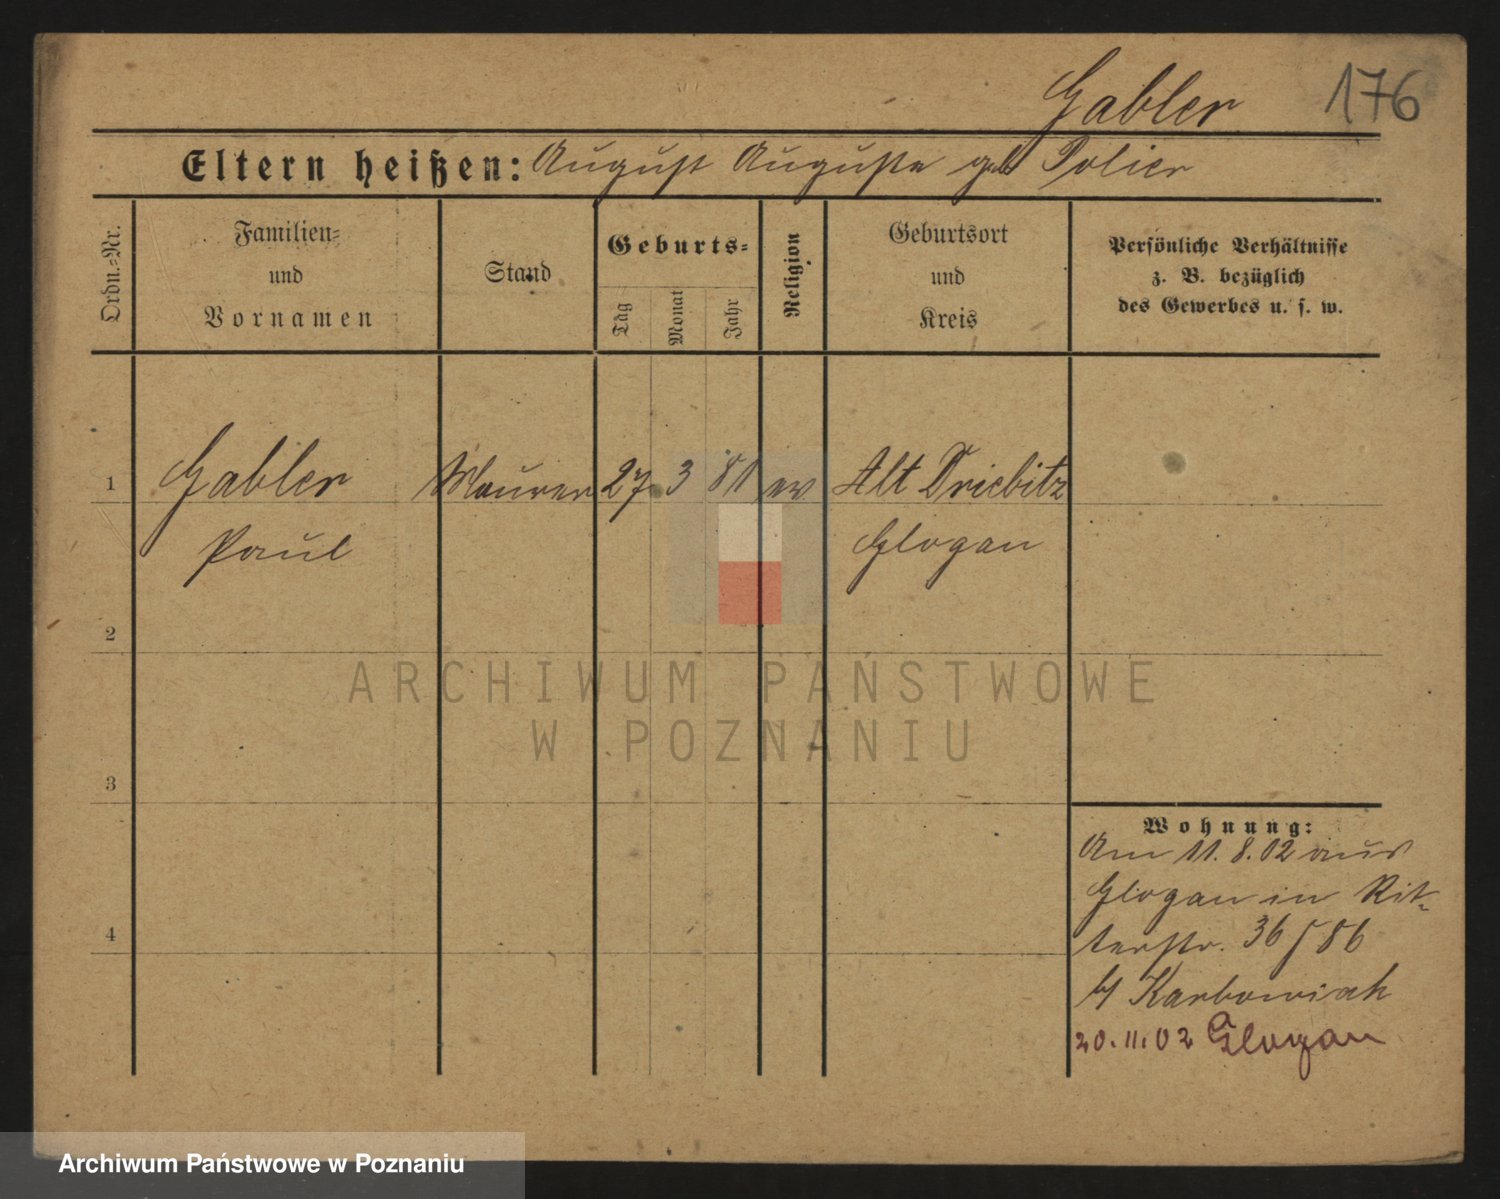 Gabler 176
Eltern heißen: August Auguste geb Polier
Ordn.=Nr.
Familien=
und
Vornamen
Stand
Geburts=
Tag
Monat
Jahr
Religion
Geburtsort
und
Kreis
Persönliche Verhältnisse
z. B. bezüglich
des Gewerbes u. s. w.
1 Gabler Maurer 27 3 81 ev Alt Driebitz
Paul Glogau
2
3
4
Wohnung:
Am 11.8.02 aus
Glogau in Rit-
terstr. 36 / 86
b/ Karbowiak
20.11.02 Glogau
ARCHIWUM PAŃSTWOWE
W POZNANIU
Archiwum Państwowe w Poznaniu